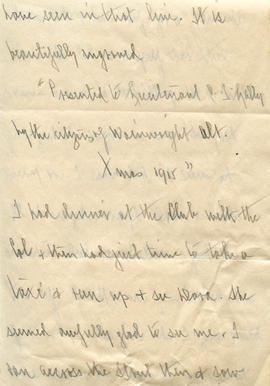 have seen in that line. It is
beautifully engraved
"Presented to Lieutenant
by the citizens of Wainwright Alt.
Xmas 1915"
I had dinner at the Club with the
Col & then had just time to take a
taxi & run up & see Dora. She
seemed awfully glad to see me. I
ran across the street then & saw